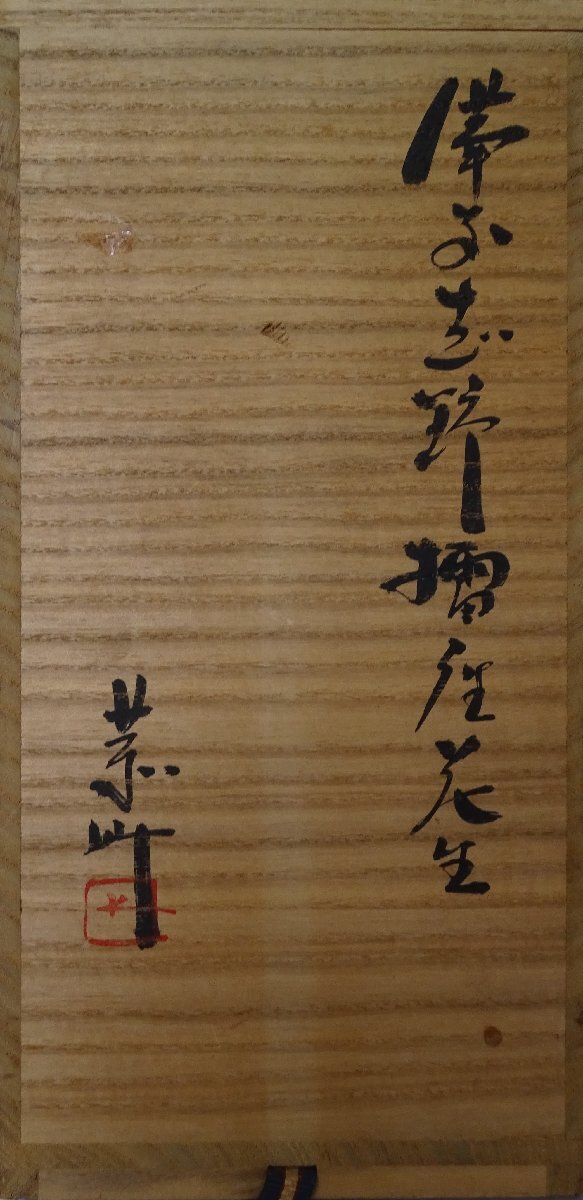 備前志野擂座花生
恭峰